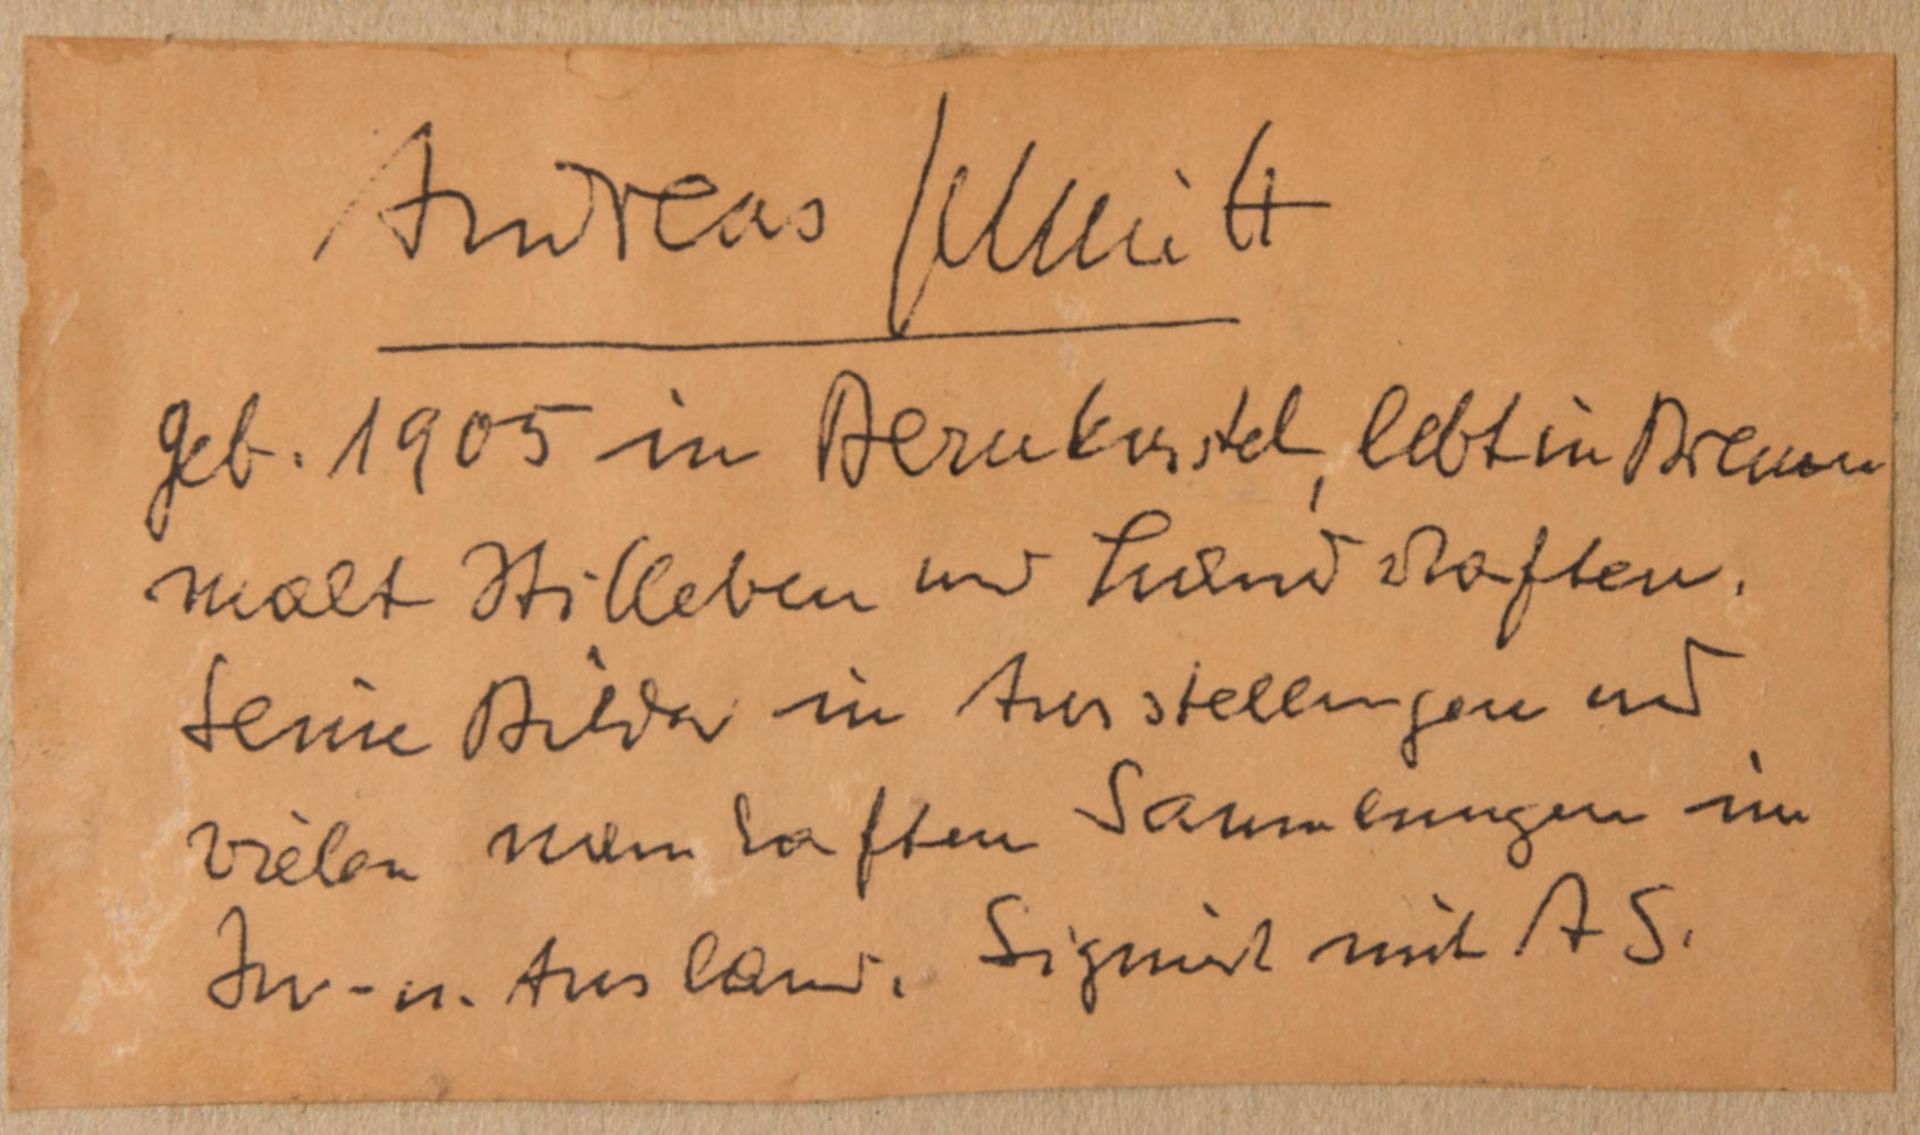 Andreas Schmitt
geb. 1905 in Bernkastel, lebt in Bremen
malt Stilleben und Landschaften.
Seine Bilder in Ausstellungen und
vielen namhaften Sammlungen im
In- u. Ausland. Signiert mit A S.